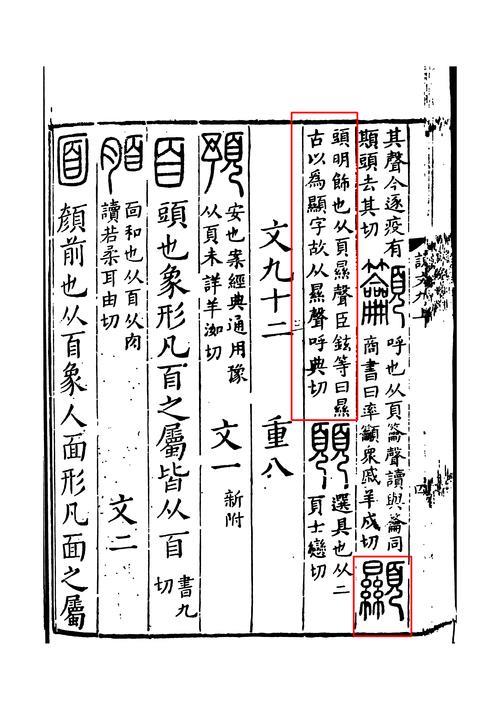 其聲今逐疫有
䫏頭去其切
籲
呼也从頁籥聲讀與籥同
商書曰率籲衆戚羊戍切
顯
頭明飾也从頁㬎聲臣鉉等曰㬎
古以為顯字故从㬎聲呼典切
選具也从二
頁士戀切
文九十二 重八
預
安也案經典通用豫
从頁未詳羊洳切
文一 新附
𦣻 頭也象形凡𦣻之屬皆从𦣻 書九切
脜
面和也从𦣻从肉
讀若柔耳由切
文二
面 顔前也从𦣻象人面形凡面之屬
四